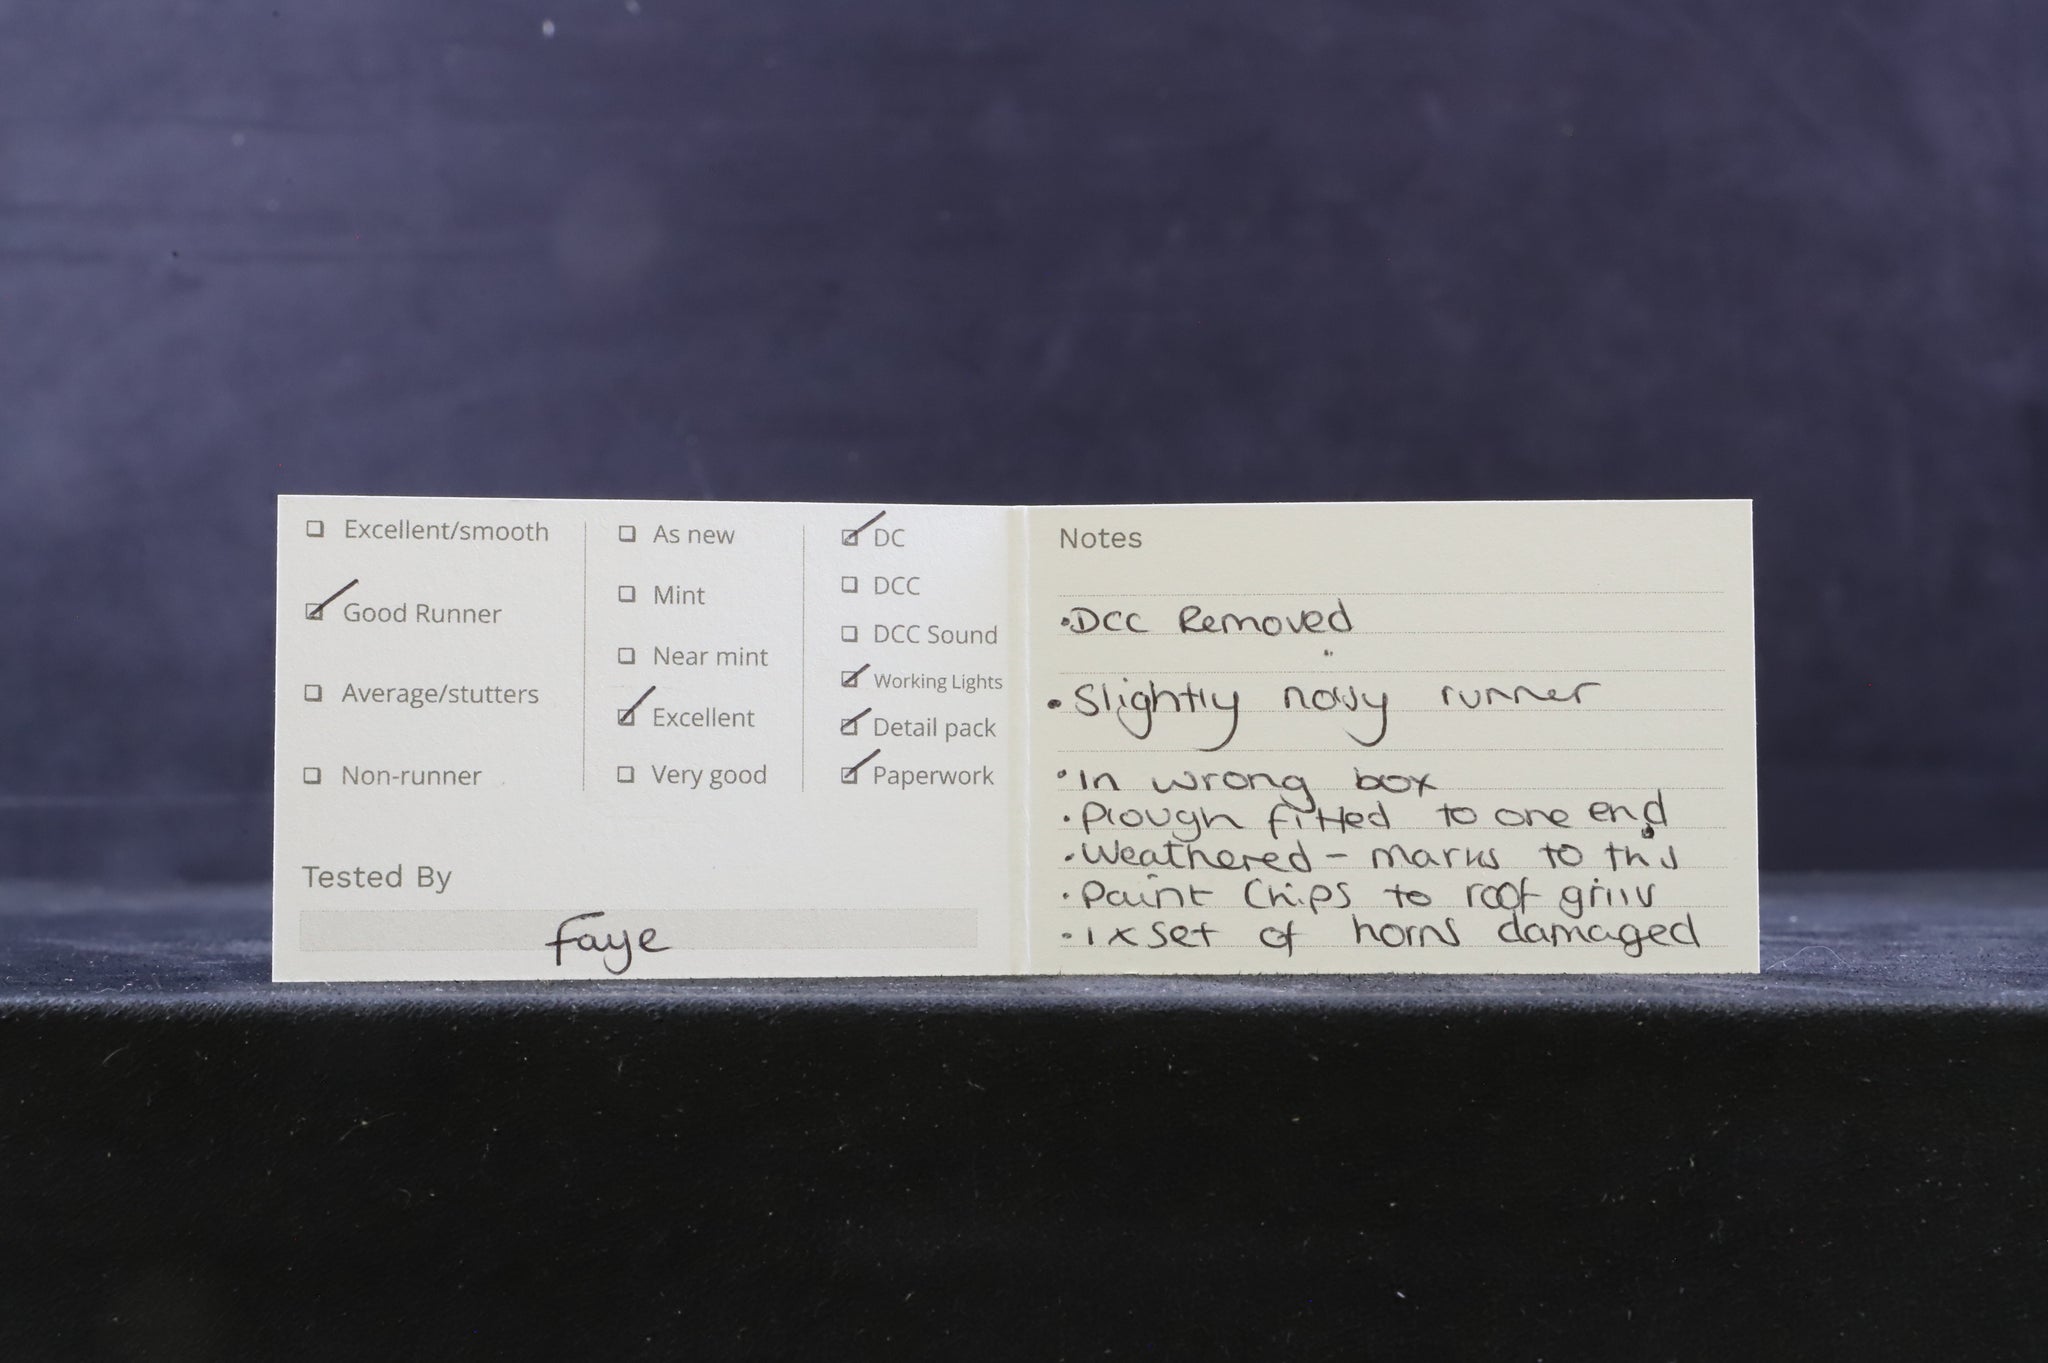 ☐ Excellent/smooth
☑ Good Runner
☐ Average/stutters
☐ Non-runner
☐ As new
☐ Mint
☐ Near mint
☑ Excellent
☐ Very good
☑ DC
☐ DCC
☐ DCC Sound
☑ Working Lights
☑ Detail pack
☑ Paperwork
Tested By
Faye
Notes
• DCC Removed
• Slightly noisy runner
• In wrong box
• Plough fitted to one end
• Weathered - marks to this
• Paint Chips to roof grills
• 1x set of horns damaged